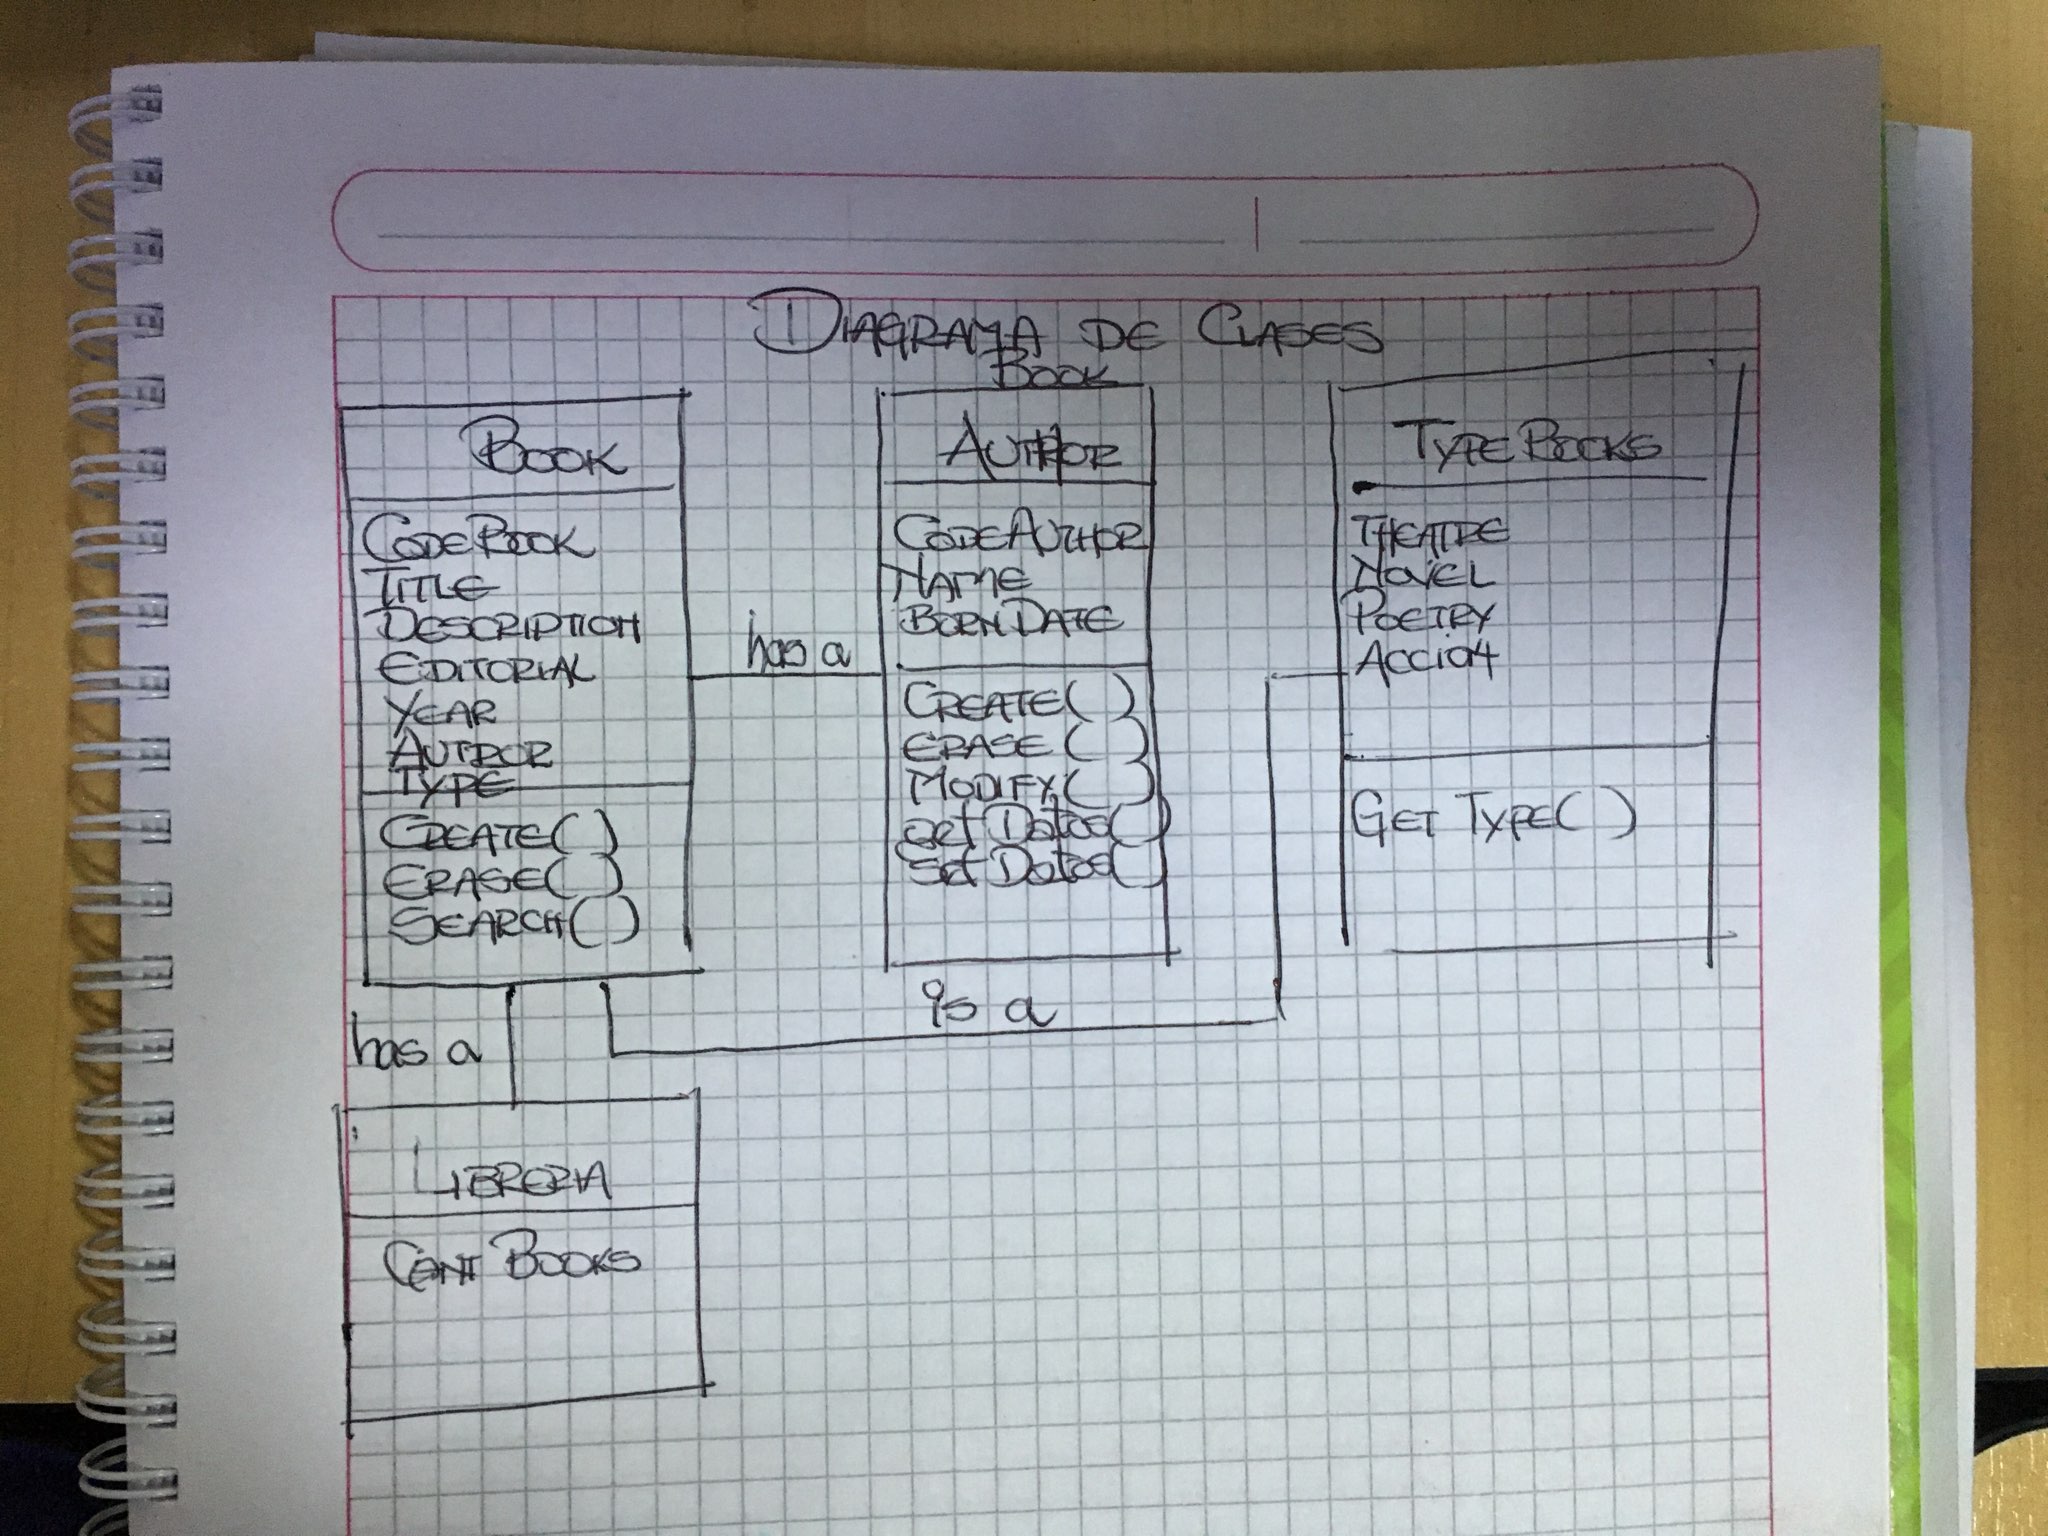 DIAGRAMA DE CLASES
BOOK
BOOK
CODEBOOK
TITLE
DESCRIPTION
EDITORIAL
YEAR
AUTHOR
TYPE
CREATE( )
ERASE( )
SEARCH( )
has a
AUTHOR
CODEAUTHOR
NAME
BORNDATE
CREATE( )
ERASE( )
MODIFY( )
Get Datos( )
Set Datos( )
TYPEBOOKS
THEATRE
NOVEL
POETRY
ACCION
GET TYPE( )
is a
has a
LIBRERIA
CANT BOOKS